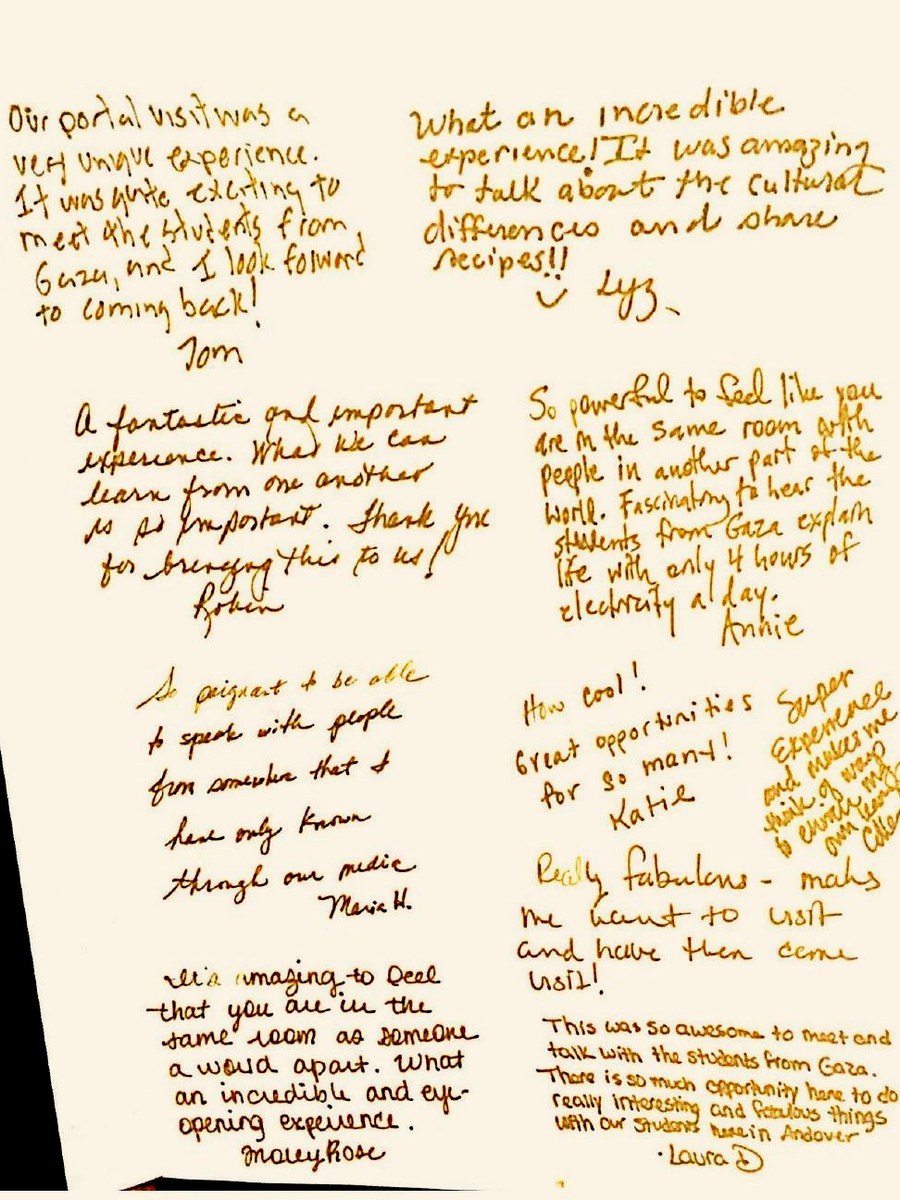 Our portal visit was a
very unique experience.
It was quite exciting to
meet the students from
Gaza, and I look forward
to coming back!
Tom
What an incredible
experience! It was amazing
to talk about the cultural
differences and share
recipes!!
Lyz
A fantastic and important
experience. What we can
learn from one another
is so important. Thank you
for bringing this to us!
Robin
So powerful to feel like you
are in the same room with
people in another part of the
world. Fascinating to hear the
students from Gaza explain
life with only 4 hours of
electricity a day.
Annie
So poignant to be able
to speak with people
from somewhere that I
have only known
through our media
Maria H.
How cool!
Great opportunities
for so many!
Katie
Super
Experience
and makes me
think of ways
to enrich my
own
Really fabulous - makes
me want to visit
and have them come
visit!
It's amazing to feel
that you are in the
same room as someone
a world apart. What
an incredible and eye-
opening experience.
MaryRose
This was so awesome to meet and
talk with the students from Gaza.
There is so much opportunity here to do
really interesting and fabulous things
with our students here in Andover
·Laura D